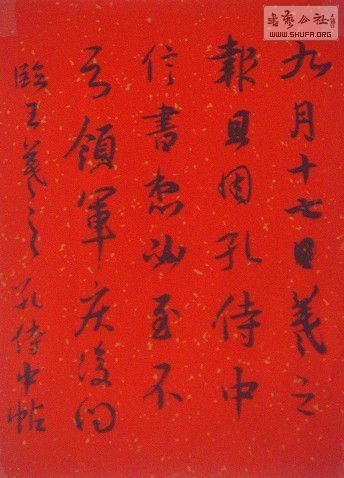 九月十七日羲之
報且因孔侍中
信書想必至不
知領軍疾後問
臨王羲之孔侍中帖
書藝公社
WWW.SHUFA.ORG